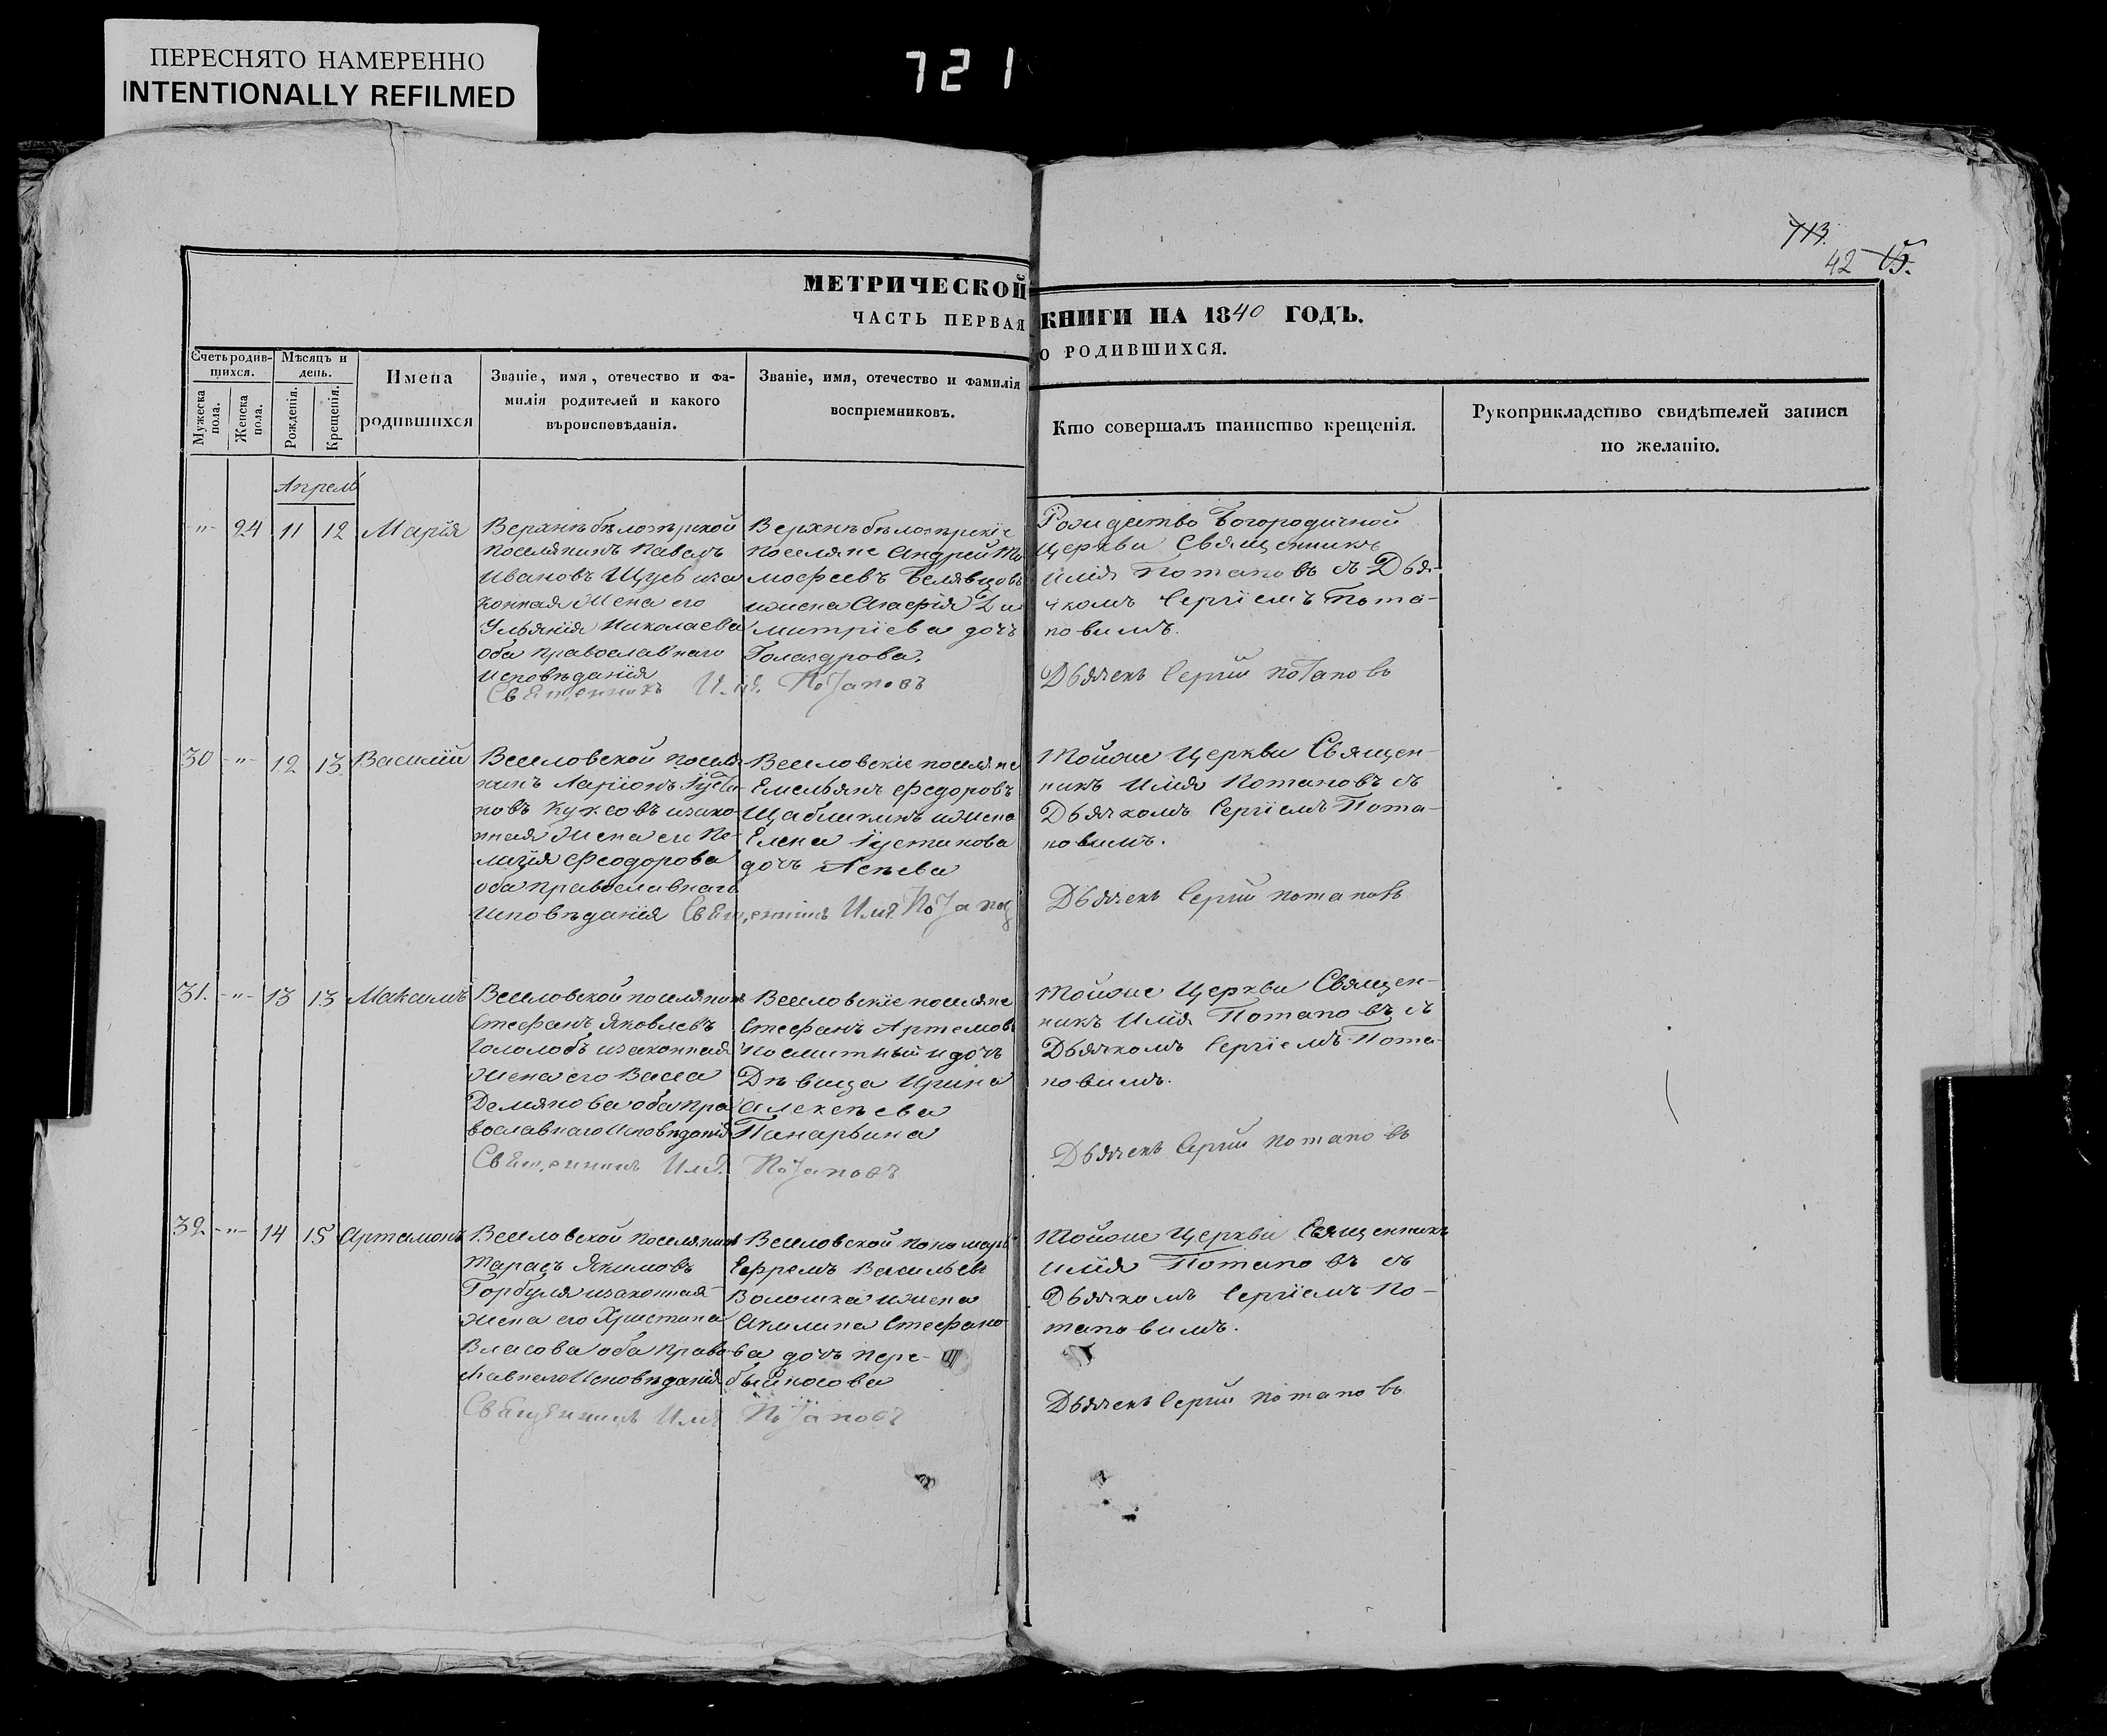 ПЕРЕСНЯТО НАМЕРЕННО
INTENTIONALLY REFILMED
721
713.
42
МЕТРИЧЕСКОЙ КНИГИ НА 1840 ГОДЪ.
ЧАСТЬ ПЕРВАЯ О РОДИВШИХСЯ.
Счетъ родив-
шихся.
Мужеска
пола.
Женска
пола.
Мѣсяцъ и
день.
Рожденія.
Крещенія.
Имена
родившихся
Званіе, имя, отечество и фа-
милія родителей и какого
вѣроисповѣданія.
Званіе, имя, отечество и фамилія
воспріемниковъ.
Кто совершалъ таинство крещенія.
Рукоприкладство свидѣтелей записи
по желанію.
Апрель
-"- 24 11 12 Марія
Верхнѣбѣлозѣрской
поселянинъ Павелъ
Ивановъ изза
конная жена его
Ульянія Николаева
оба православнаго
исповѣданія
Верхнѣбѣлозѣрскіе
поселяне Андрей Ти
мофеевъ Белявцовъ
ижена Агафія Ди
митріева дочъ
Голаздрова.
Священникъ Илія Потаповъ
Рождество Богородичной
Церкви Священникъ
Илія Потаповъ съ Дья-
чкомъ Сергіемъ Пота-
повимъ.
Дьячекъ Сергій Потаповъ
30 -"- 12 13 Василій
Веселовской поселя
нинъ Ларіонъ Іусти-
новъ Куксовъ изако-
нная жена его Пе-
лагія Феодорова
оба православнаго
исповѣданія
Веселовскіе поселяне
Емельянъ Федоровъ
Щаблыкинъ ижена
Елена Іустинова
дочъ
Священникъ Илія Потапов
Тойже Церкви Священ-
никъ Илія Потаповъ съ
Дьячкомъ Сергіемъ Пота-
повимъ.
Дьячекъ Сергій Потаповъ
31. -"- 13 13 Макъсимъ
Веселовской поселянинъ
Стефанъ Яковлевъ
Гололобъ изаконная
жена его Васса
Демянова оба пра
вославнаго исповѣданія
Веселовскіе поселяне
Стефанъ Артемовъ
идочъ
Дѣвица Ирина
Алексѣева
Панарьина
Священникъ Илія Потаповъ
Тойже Церкви Священ-
никъ Илія Потаповъ съ
Дьячкомъ Сергіемъ Пота-
повимъ.
Дьячекъ Сергій Потаповъ
32. -"- 14 15 Артамонъ
Веселовской поселянинъ
Тарасъ Якимовъ
Горбуля изаконная
жена его Христина
Власова оба право-
славнаго исповѣданія
Веселовской пономаръ
Ефремъ Васильевъ
Волошка ижена
Акилина Стефано-
ва дочъ Пере-
быйносова
Священникъ Илія Потаповъ
Тойже Церкви Священникъ
Илія Потаповъ съ
Дьячкомъ Сергіемъ По-
таповимъ.
Дьячекъ Сергій Потаповъ